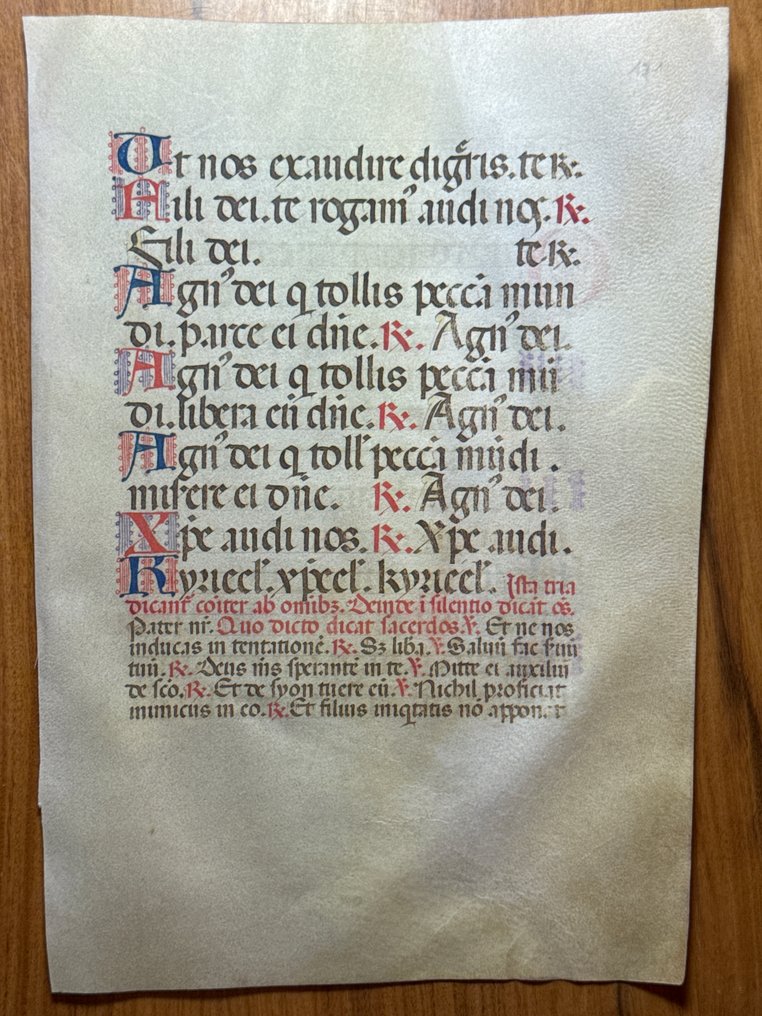 171
Ut nos exaudire dig̃ris. te ℟.
Fili dei. te rogam⁹ audi nos. ℟.
Fili dei. te ℟.
Agn⁹ dei q tollis pecc̄a mun
di. parce ei dn̄e. ℟. Agn⁹ dei.
Agn⁹ dei q tollis pecc̄a mū
di. libera eū dn̄e. ℟. Agn⁹ dei.
Agn⁹ dei q toll' pecc̄a mūdi.
misere ei dn̄e. ℟. Agn⁹ dei.
Xp̄e audi nos. ℟. Xp̄e audi.
Kyrieel'. xp̄eel'. kyrieel'. Ista tria
dicant᷑ cōiter ab om̄ibꝫ. Deinde ī silentio dicāt oēs.
Pater nr̄. Quo dicto dicat sacerdos. ℣. Et ne nos
inducas in tentationē. ℟. Sꝫ liba. ℣. Saluū fac ẜuū
tuū. ℟. Deus m̄s sperantē in te. ℣. Mitte ei auxiliū
de sc̄o. ℟. Et de syon tuere eū. ℣. Nichil proficiat
inimicus in eo. ℟. Et filius iniq̄tatis nō apponat